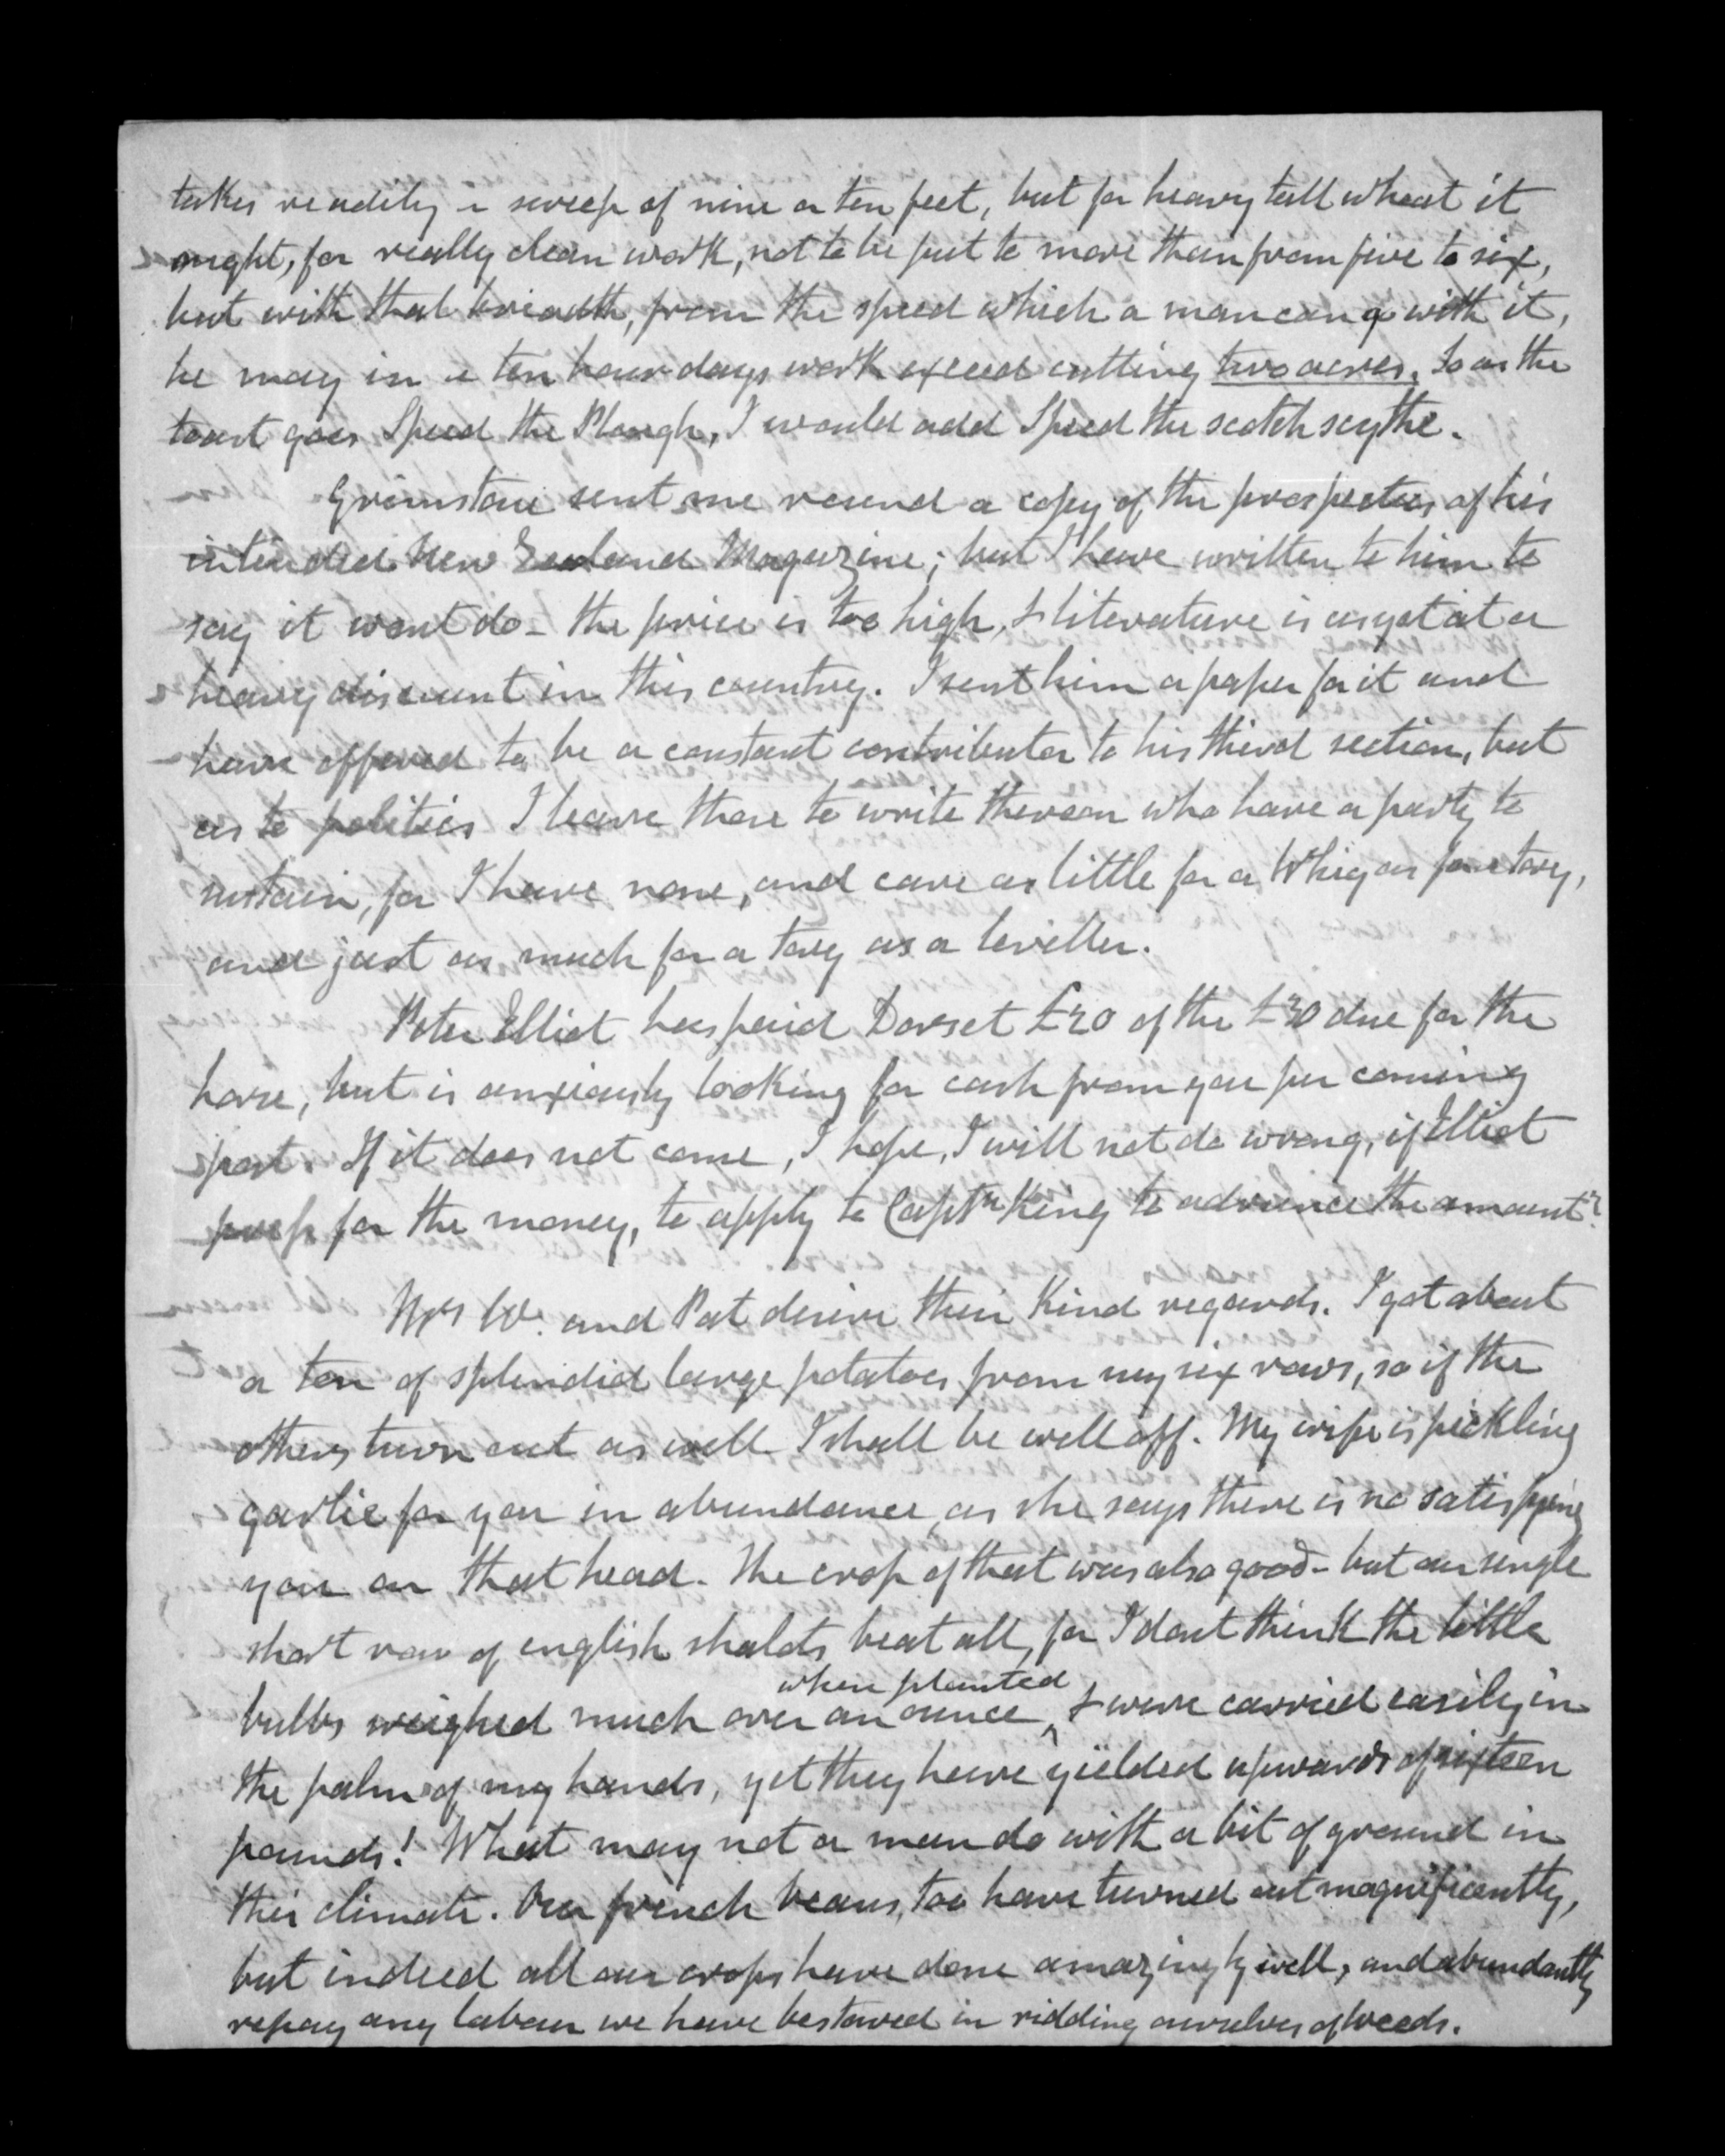 takes readily a sweep of nine or ten feet, but for heavy tall wheat it
ought, for really clean work, not to be put to more than from five to six,
but with that breadth, from the speed which a man can go with it,
he may in a ten hour days work exceed cutting two acres. So as the
toast goes Speed the Plough, I would add Speed the scotch scythe.
Grimstone sent me round a copy of the prospectus of his
intended New Zealand Magazine; but I have written to him to
say it wont do - the price is too high, & literature is as yet at a
heavy discount in this country. I sent him a paper for it and
have offered to be a constant contributor to his third section, but
as to politics I leave those to write thereon who have a party to
sustain, for I have none, and care as little for a Whig as for a tory,
and just as much for a tory as a leveller.
Peter Elliot has paid Dorset £20 of the £30 due for the
horse, but is anxiously looking for cash from you per coming
post. If it does not come, I hope, I will not do wrong, if Elliot
press for the money, to apply to Captn King to advance the amount?
Mrs W. and Pat desire their Kind regards. I got about
a ton of splendid large potatoes from my six rows, so if the
others turn out as well I shall be well off. My wife is pickling
garlic for you in abundance, as she says there is no satisfying
you on that head. The crop of that was also good - but our single
short row of english shalots beat all, for I dont think the little
bulbs weighed much over an ounce when planted, & were carried easily in
the palm of my hands, yet they have yielded upwards of sixteen
pounds! What may not a man do with a bit of ground in
this climate. Our french beans, too have turned out magnificently,
but indeed all our crops have done amazingly well, and abundantly
repay any labour we have bestowed in ridding ourselves of weeds.